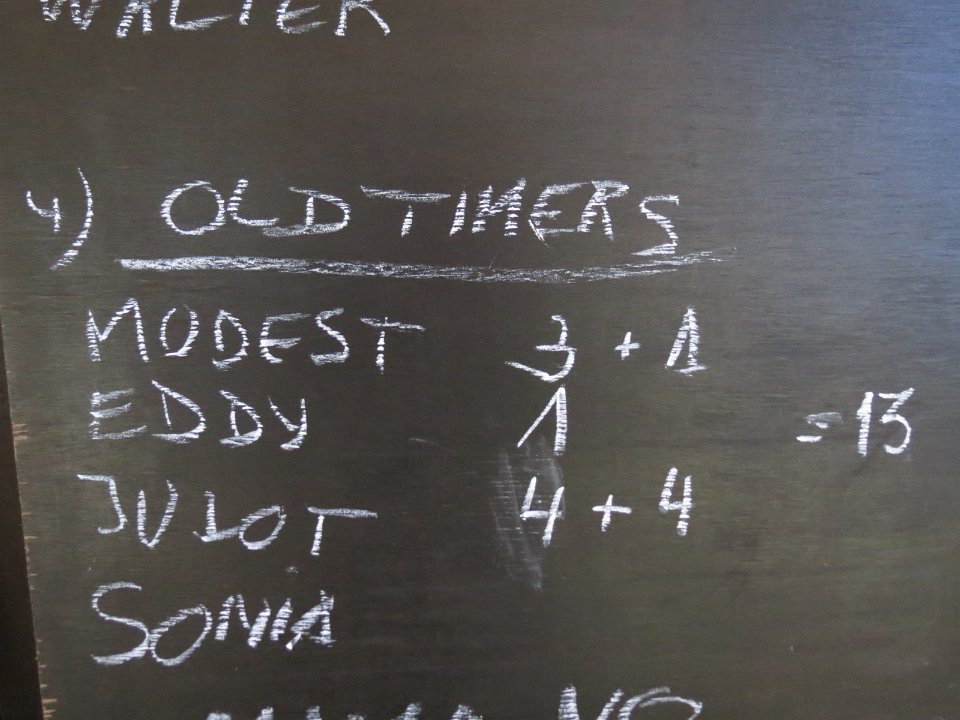 WALTER
4) OLDTIMERS
MODEST 3 + 1
EDDY 1 = 13
JULOT 4 + 4
SONIA